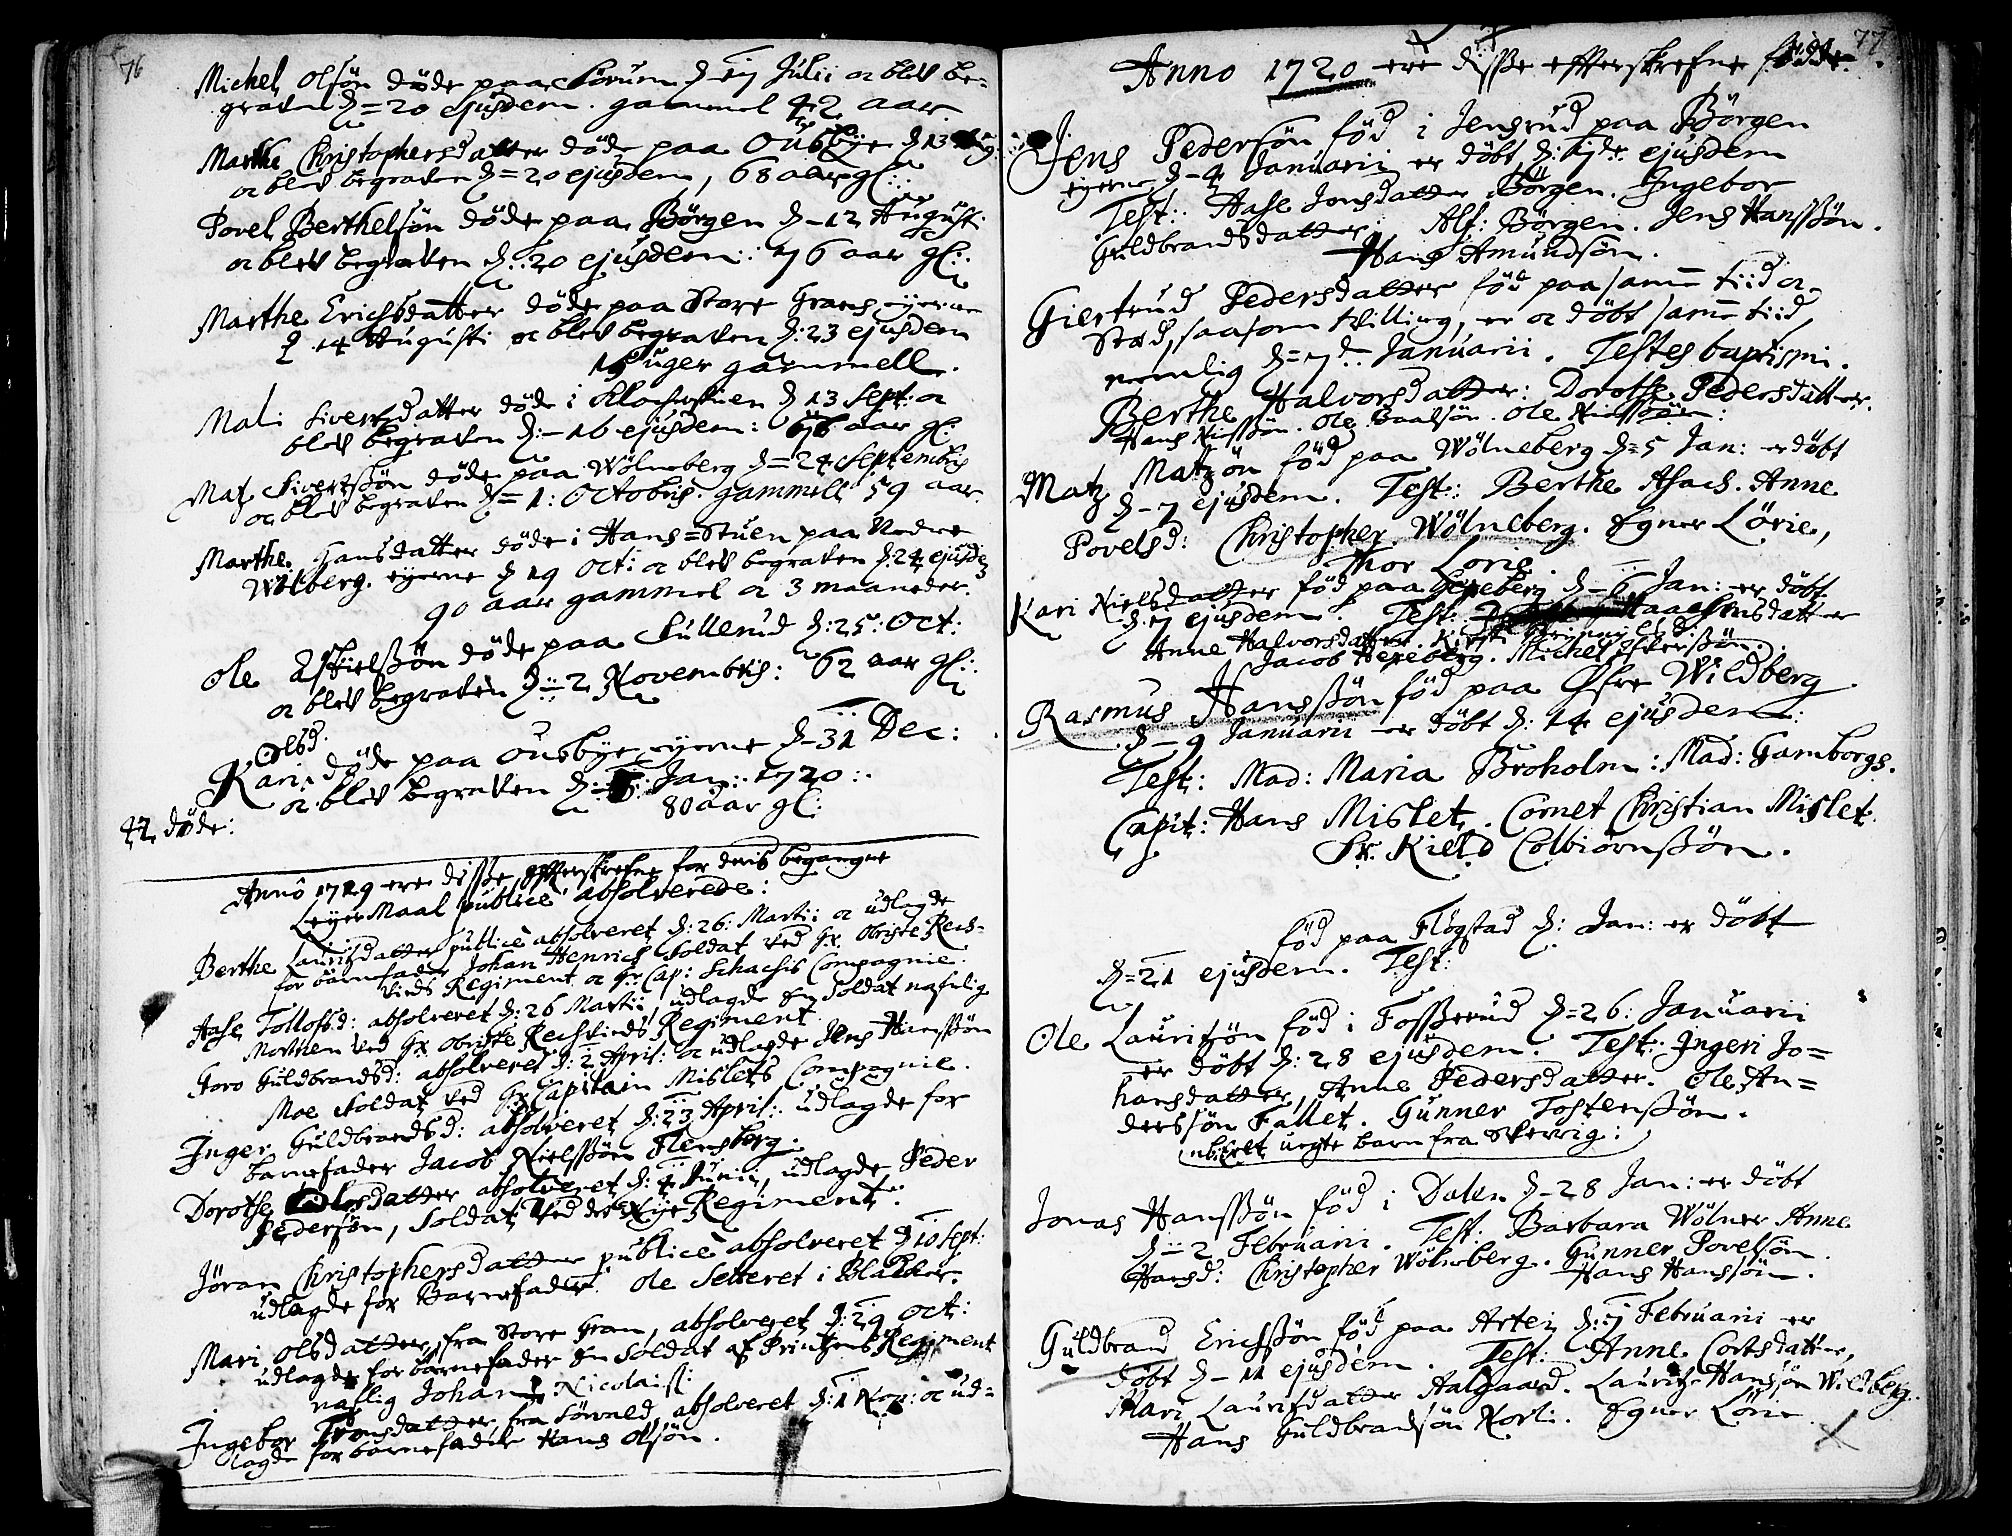 76
Michel Olsön döde paa Sörum d. 17 Julii oc blef be-
graven d = 20 ejusdem. gammel 42 aar.
Marthe Christophersdatter döde paa Ousbÿe d 13 Aug:
oc blef begraven d = 20 ejusdem, 68 aar gl:
Povel Berthelsön döde paa Börgen d - 12 August:
oc blef begraven d: 20 ejusdem: 76 aar gl:
Marthe Erichsdatter döde paa Store Gran
14 Augusti oc blef begraven d: 23 ejusdem
uger gammell.
Mali Siversdatter döde i d 13 Sept: oc
blef begraven d: - 16 ejusdem: aar gl:
Matz Sivertzsön döde paa Wölneberg d = 24 Septembris
oc blef begraven d = 1: Octobris. gammell 59 aar
Marthe Hansdatter döde i Hans=Stuen paa Nedre
Wölberg. eyerne d 19 Oct: oc blef begraven d: 24 ejusd:
90 aar gammel oc 3 maaneder.
Ole Eskielssön döde paa Sullerud d: 25: Oct:
oc blef begraven d = 2 Novembris: 62 aar gl:
Olsd.
Kari döde paa Ousbye eyerne d - 31 Dec:
oc blef begraven d: Jan: 1720:
80 aar gl:
42 döde:
Anno 1719 ere disse efterskrefne for deris begangne
Leyer Maal publice absolverede:
Berthe Lauritsdatter publice absolveret d: 26: Martii oc udlagde
for barnefader Johan Henrich Soldat ved Hr. Obriste Rech-
vids Regiment oc Hr: Cap: Schachts Compagnie.
Aase Tollofsd: absolveret d: 26 Martii, udlagde en Soldat nafnlig
Morthen ved Hr Obriste Rechvids Regiment
Goro Guldbrandsd: absolveret d: 2 April: oc udlagde Jens Hanssön
Moe Soldat ved Hr Capitain Mislets Compagnie.
Inger Guldbrandsd: absolveret d: 23 April: udlagde for
barnefader Jacob Nielssön Flensberg.
Dorothe Olesdatter absolveret d: 4 Junii, udlagde Peder
Pedersön, Soldat ved det Nye Regiment.
Jöran Christophersdatter publice absolveret d 10 Sept:
udlagde for Barnefader Ole Seteret i Blakker.
Mari Olsdatter fra Store Gran, absolveret d: 29 Oct:
udlagde for barnefader en Soldat af Printzens Regiment
nafnlig Johan Nicolai:
Ingebor Tronsdatter fra Sörvald absolveret d: 1 Nov: oc ud-
lagde for barnefader Hans Olsön.
77
Anno 1720 ere disse efterskrefne födde.
Jens Pedersön föd i Jensrud paa Börgen
eyerne d - 4 Januarii er döbt d: 7de ejusdem
Test: Aase Jonsdatter Börgen. Ingebor
Guldbrandsdatter, Alf: Börgen. Jens Hanssön.
Hans Amundsön.
Giertrud Pedersdatter föd paa samme tiid oc
Stæd, saasom tvilling, er oc döbt samme tiid,
nemlig d = 7de Januarii. Testes baptismi.
Berthe Halvorsdatter: Dorothe Pedersdatter.
Hans Nilssön. Ole Baalsön. Ole Nilssön:
Matz Matzön föd paa Wölneberg d = 5 Jan: er döbt
d - 7 ejusdem. Test: Berthe Asach. Anne
Povelsd: Christopher Wölneberg. Egner Lörie,
Thor Lorie.
Kari Nielsdatter föd paa Hexeberg d - 6 Jan: er döbt
d: 7 ejusdem. Test: Haachensdatter
Anne Halvorsdatter. Kirsti
Jacob Hexeberg. Michel
Rasmus Hanssön föd paa Øfre Wildberg
d - 9 Januarii er döbt d: 14 ejusdem:
Test: Mad: Maria Broholm: Mad: Gamborgs.
Capit: Hans Mislet. Cornet Christian Mislet
Sr. Kield Colbiörnssön.
föd paa Flögstad d: Jan: er döbt
d = 21 ejusdem. Test:
Ole Lauritzön föd i Fosserud d = 26: Januarii
er döbt d: 28 ejusdem. Test: Ingeri Jo=
hansdatter, Anne Pedersdatter. Ole An=
derssön Fallet. Gunner Tostenssön.
uegte barn fra Skevrig:
Jonas Hanssön föd i Dalen d - 28 Jan: er döbt
d = 2 Februarii. Test: Barbara Wölner Anne
Hansd: Christopher Wölneberg. Gunner Povelsön
Hans Hanssön.
Guldbrand Erichssön föd paa Arteii d: 7 Februarii er
döbt d - 11 ejusdem. Test: Anne Cortsdatter,
Mari Lauritsdatter Aalgaard. Lauritz Hanssön Wildberg.
Hans Guldbrandsön Norli. Egner Lörie